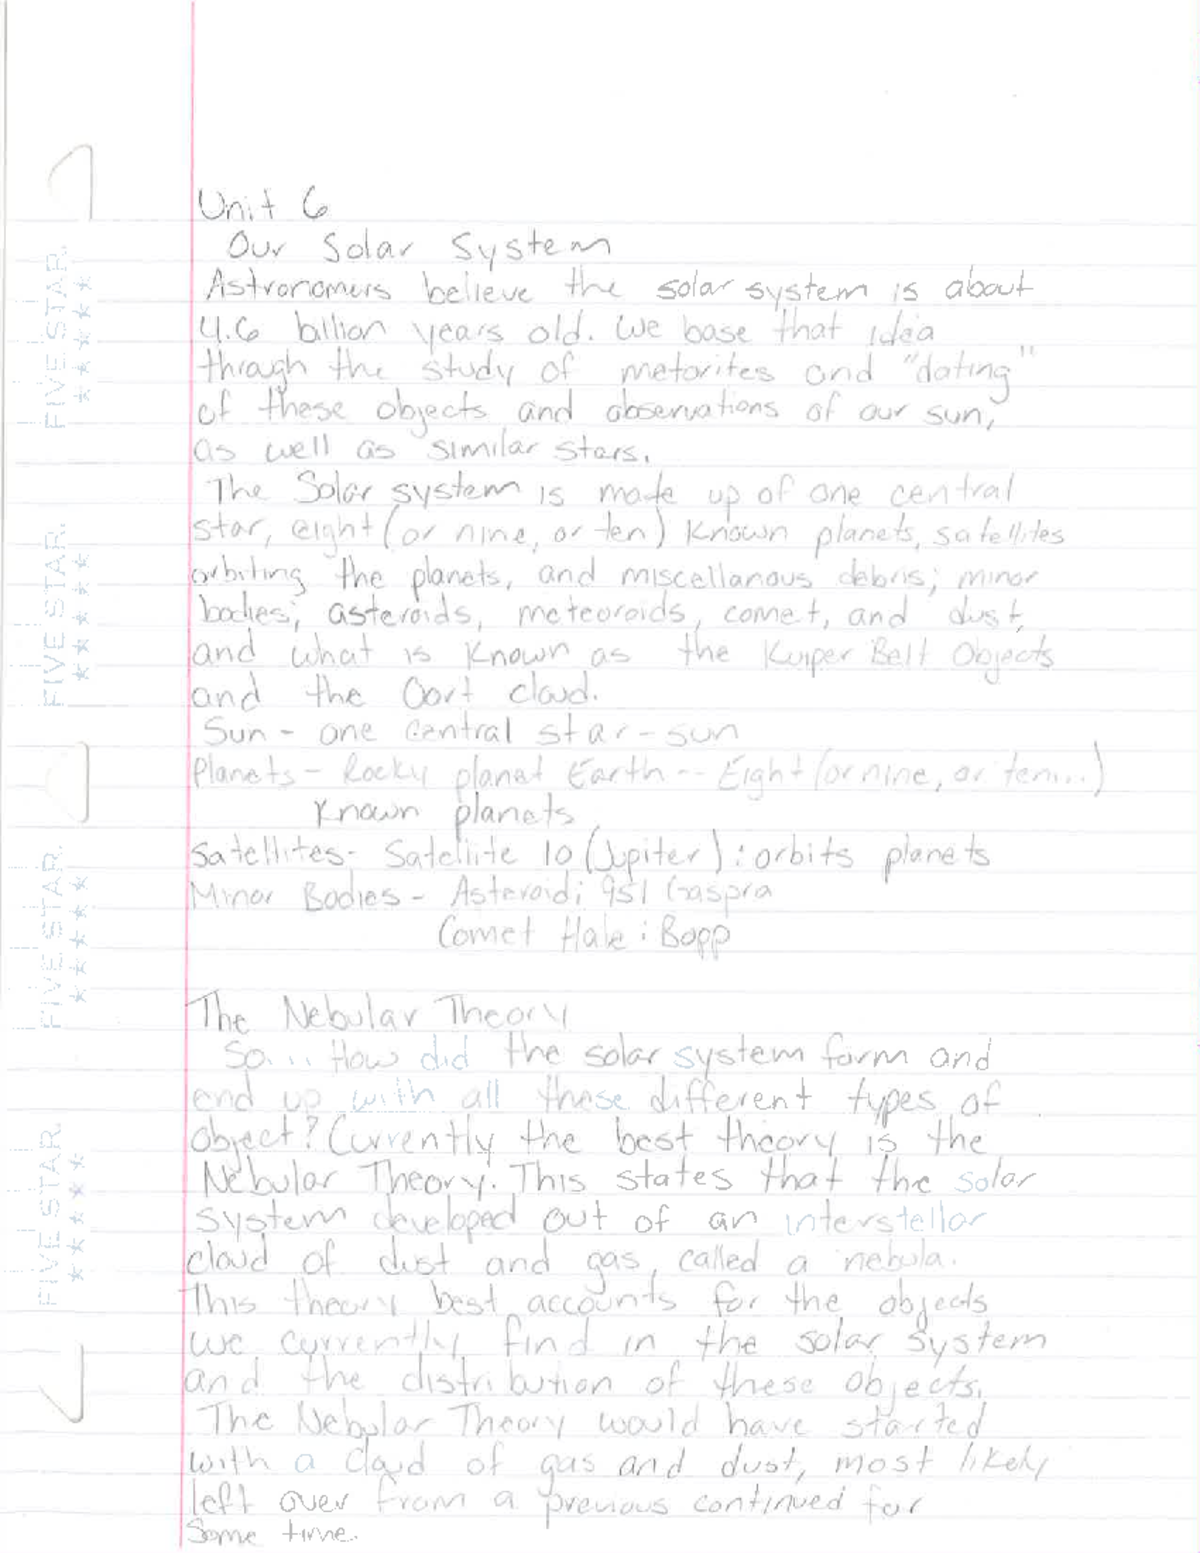 Unit 6
Our Solar System
Astronomers believe the solar system is about
4.6 billion years old. We base that idea
through the study of metorites and "dating"
of these objects and observations of our sun,
as well as similar stars.
The Solar system is made up of one central
star, eight (or nine, or ten) known planets, satellites
orbiting the planets, and miscellanous debris; minor
bodies; asteroids, meteoroids, comet, and dust,
and what is known as the Kuiper Belt Objects
and the Oort cloud.
Sun - one central star - sun
Planets - Rocky planet Earth -- Eight (or nine, or ten...)
known planets
Satellites - Satellite IO (Jupiter) : orbits planets
Minor Bodies - Asteroid; 951 Gaspra
Comet Hale : Bopp
The Nebular Theory
So... How did the solar system form and
end up with all these different types of
object? Currently the best theory is the
Nebular Theory. This states that the solar
system developed out of an interstellar
cloud of dust and gas, called a nebula.
This theory best accounts for the objects
we currently find in the solar system
and the distribution of these objects.
The Nebular Theory would have started
with a cloud of gas and dust, most likely
left over from a previous continued for
Some time.
FIVE STAR.
FIVE STAR.
FIVE STAR.
FIVE STAR.